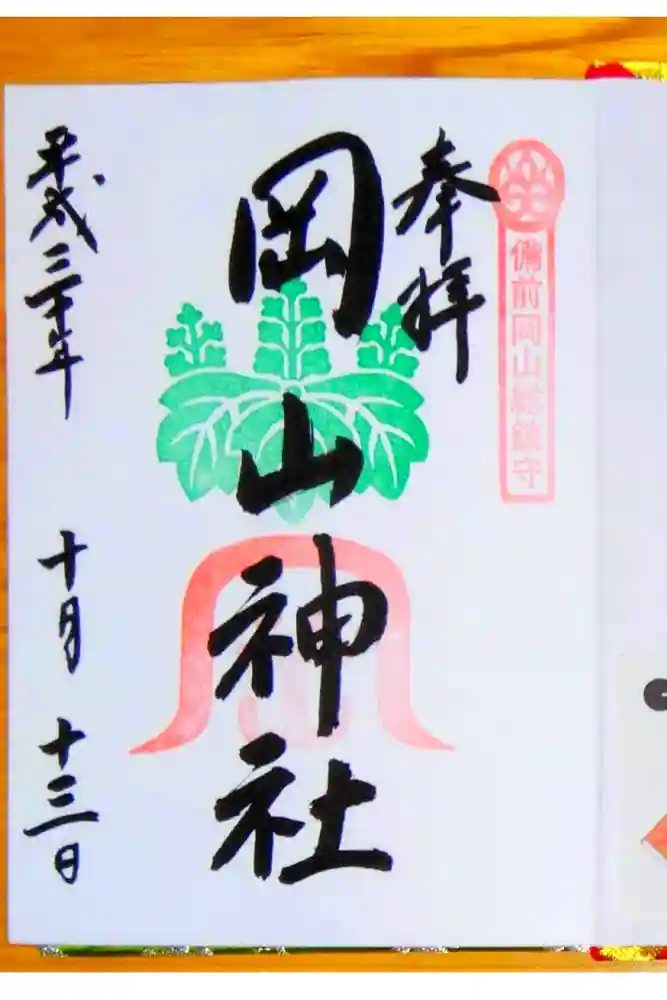 備前岡山総鎮守
奉拝
岡山神社
平成三十年
十月
十三日